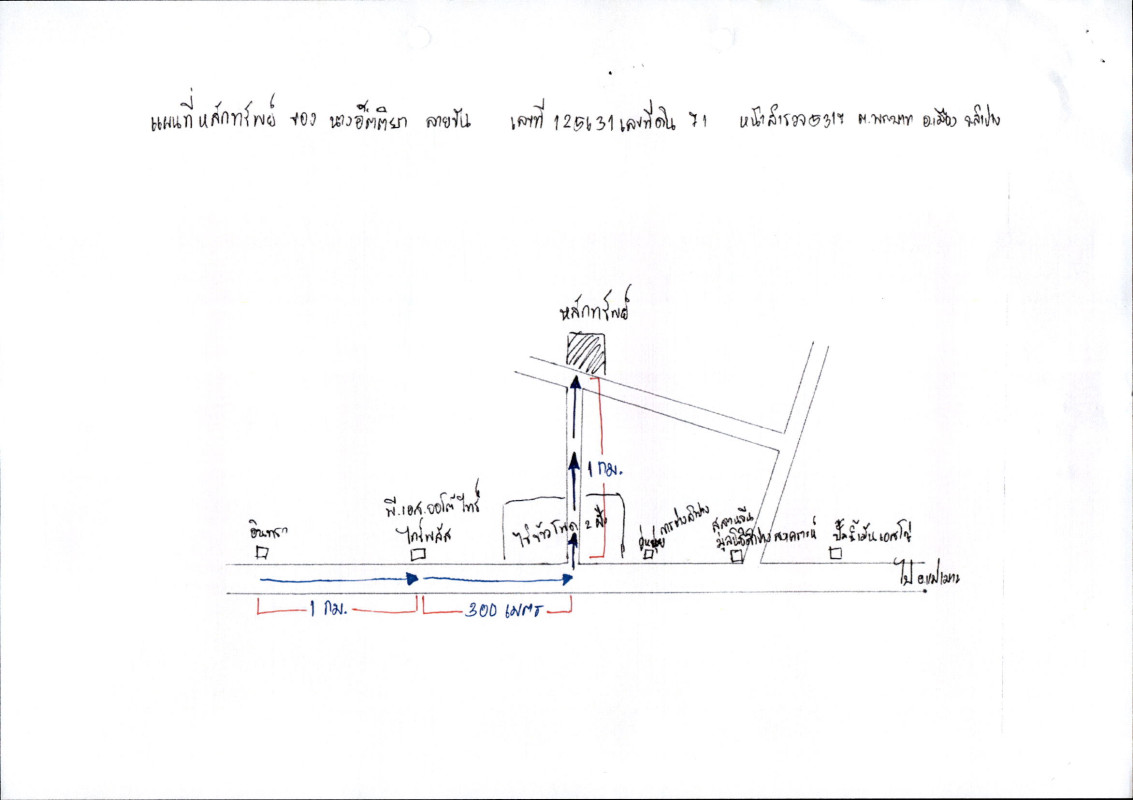 แผนที่หลักทรัพย์ ของ นาง ลายขัน เลขที่ 125631 เลขที่ดิน 71 หน้าสำรวจ 5314 ต.พระบาท อ.เมือง จ.ลำปาง
หลักทรัพย์
1 กม.
พี.เอส.ออโต้ไทร์
ไทร์พลัส
อินทรา
ไร่ข้าวโพด 2 ฝั่ง
การช่างลำปาง
สุสานจีน
มูลนิธิลำปางสงเคราะห์
ปั๊มน้ำมันเอสโซ่
ไป อ.แม่เมาะ
1 กม.
300 เมตร